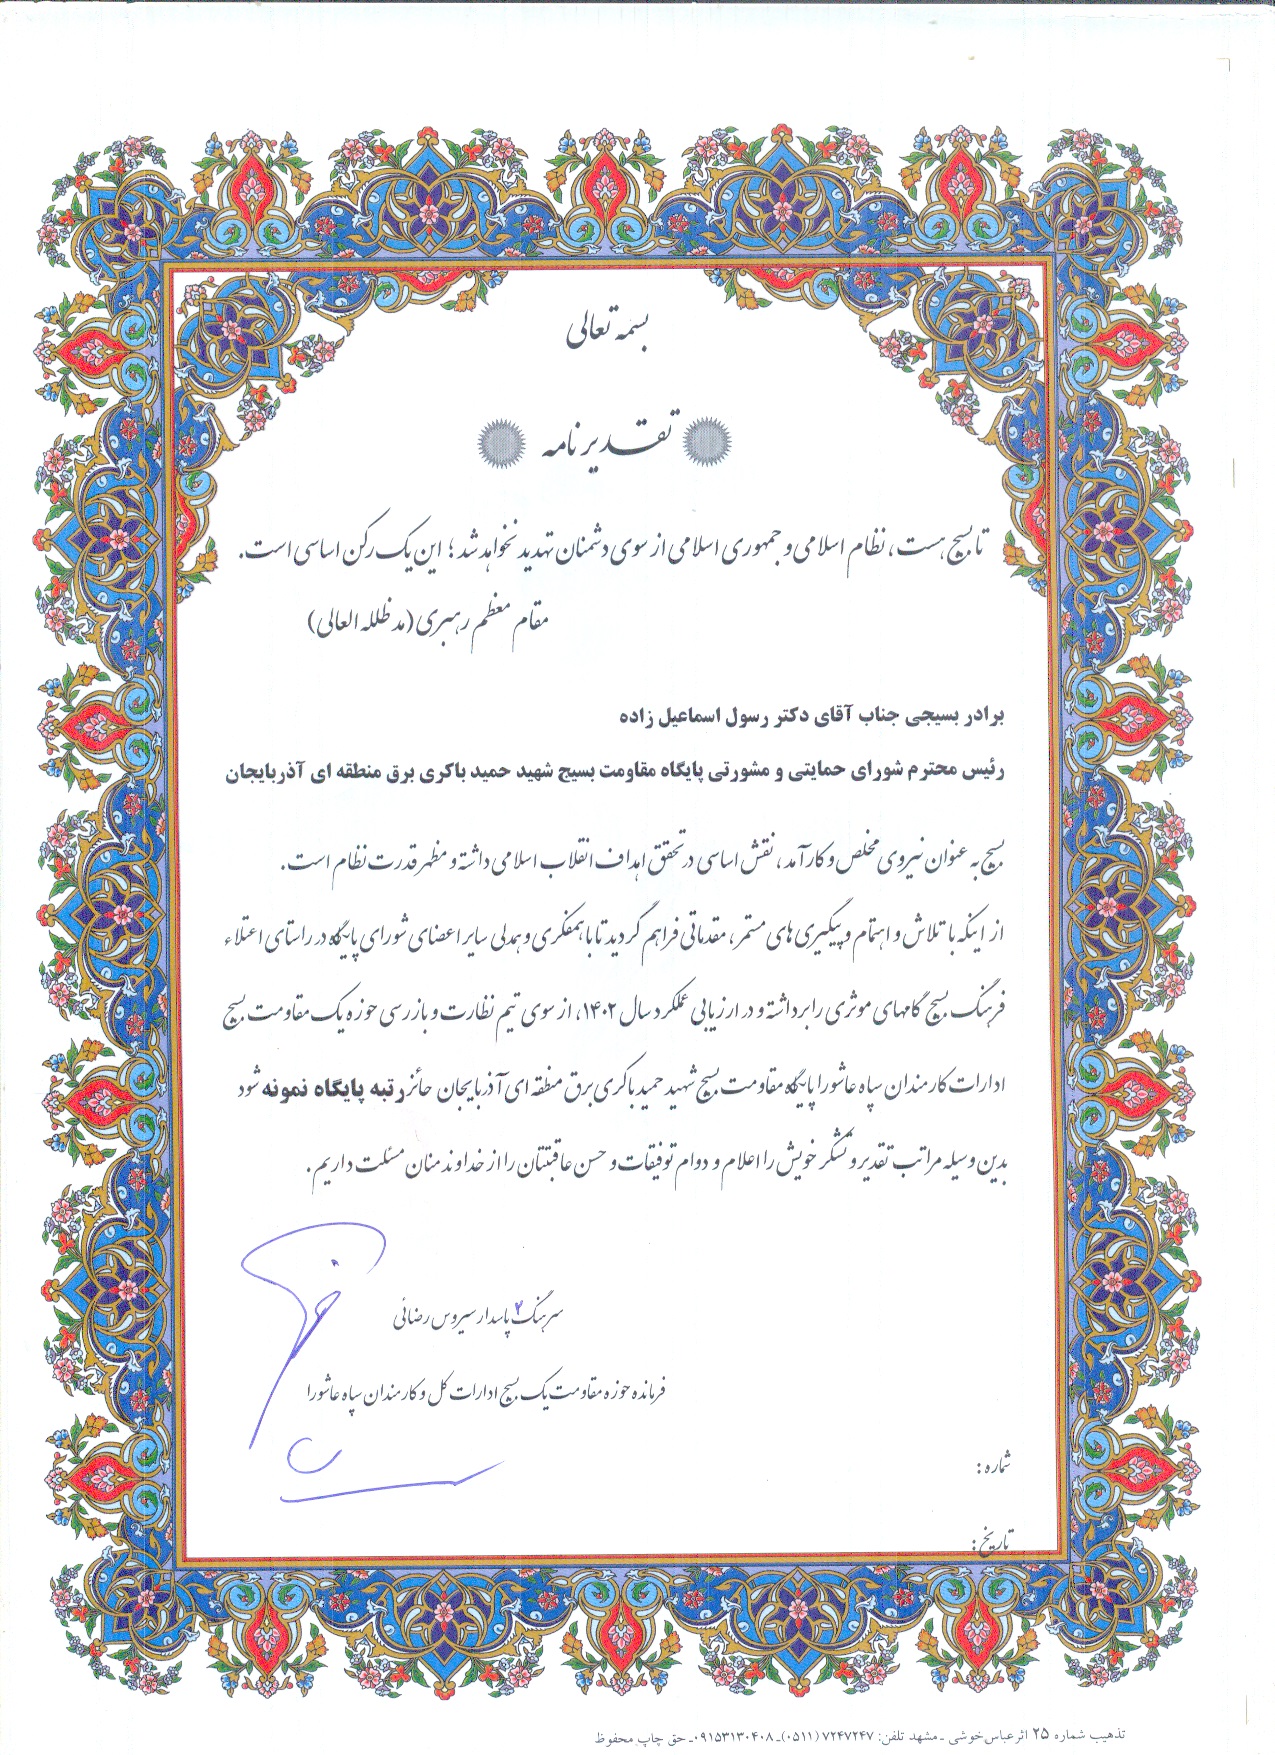 بسمه تعالی
تقدیرنامه
تا بسیج هست، نظام اسلامی و جمهوری اسلامی از سوی دشمنان تهدید نخواهد شد؛ این یک رکن اساسی است.
مقام معظم رهبری (مدظلله العالی)
برادر بسیجی جناب آقای دکتر رسول اسماعیل زاده
رئیس محترم شورای حمایتی و مشورتی پایگاه مقاومت بسیج شهید حمید باکری برق منطقه ای آذربایجان
بسیج به عنوان نیروی مخلص و کارآمد، نقش اساسی در تحقق اهداف انقلاب اسلامی داشته و مظهر قدرت نظام است.
از اینکه با تلاش و اهتمام و پیگیری های مستمر، مقدماتی فراهم گردید تا با همفکری و همدلی سایر اعضای شورای پایگاه در راستای اعتلاء
فرهنگ بسیج گامهای موثری را برداشته و در ارزیابی عملکرد سال ۱۴۰۲، از سوی تیم نظارت و بازرسی حوزه یک مقاومت بسیج
ادارات کارمندان سپاه عاشورا پایگاه مقاومت بسیج شهید حمید باکری برق منطقه ای آذربایجان حائز رتبه پایگاه نمونه شود
بدین وسیله مراتب تقدیر و تشکر خویش را اعلام و دوام توفیقات و حسن عاقبتتان را از خداوند منان مسئلت داریم.
سرهنگ ۲ پاسدار سیروس رضائی
فرمانده حوزه مقاومت یک بسیج ادارات کل و کارمندان سپاه عاشورا
شماره:
تاریخ:
تذهیب شماره ۲۵ اثر عباس خوشی - مشهد تلفن: ۷۲۴۷۲۴۷ (۰۵۱۱)-۰۹۱۵۳۱۳۰۴۰۸- حق چاپ محفوظ